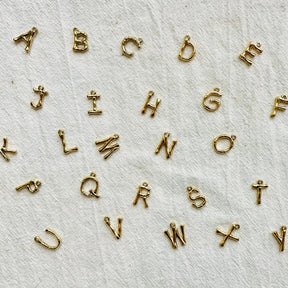 A B C D E
J I H G F
K L M N O
P Q R S T
U V W X Y